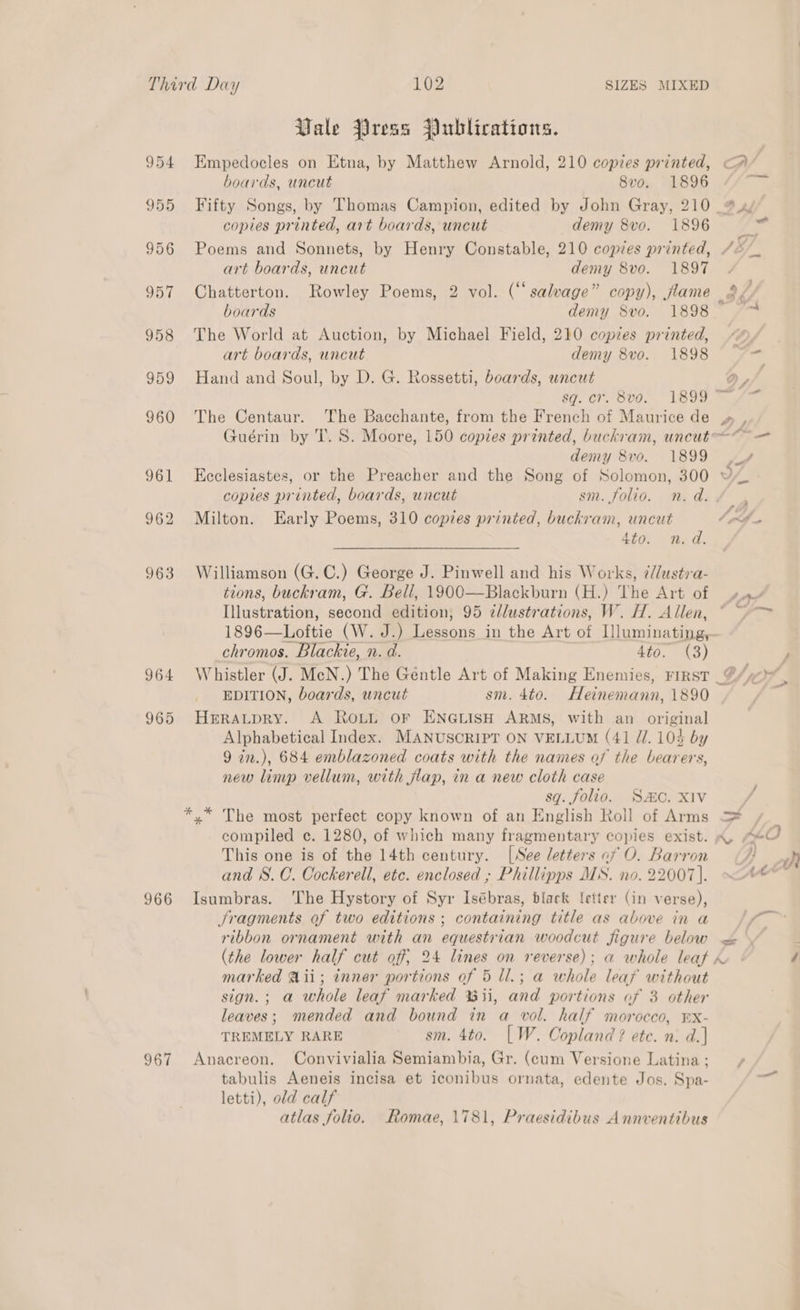 Third Day 102 SIZES MIXED
Vale Press Publications.
954 Empedocles on Etna, by Matthew Arnold, 210 copies printed,
boards, uncut 8vo. 1896
955 Fifty Songs, by Thomas Campion, edited by John Gray, 210
copies printed, art boards, uncut demy 8vo. 1896
956 Poems and Sonnets, by Henry Constable, 210 copies printed,
art boards, uncut demy 8vo. 1897
957 Chatterton. Rowley Poems, 2 vol. (“salvage” copy), flame
boards demy 8vo. 1898
958 The World at Auction, by Michael Field, 210 copies printed,
art boards, uncut demy 8vo. 1898
959 Hand and Soul, by D. G. Rossetti, boards, uncut
sq. cr. 8vo. 1899
960 The Centaur. The Bacchante, from the French of Maurice de
Guérin by T. S. Moore, 150 copies printed, buckram, uncut
demy 8vo. 1899
961 Ecclesiastes, or the Preacher and the Song of Solomon, 300
copies printed, boards, uncut sm. folio. n. d.
962 Milton. Early Poems, 310 copies printed, buckram, uncut
4to. n. d.
963 Williamson (G. C.) George J. Pinwell and his Works, illustra-
tions, buckram, G. Bell, 1900—Blackburn (H.) The Art of
Illustration, second edition, 95 illustrations, W. H. Allen,
1896—Loftie (W. J.) Lessons in the Art of Illuminating,
chromos. Blackie, n. d. 4to. (3)
964 Whistler (J. McN.) The Gentle Art of Making Enemies, FIRST
EDITION, boards, uncut sm. 4to. Heinemann, 1890
965 HERALDRY. A ROLL OF ENGLISH ARMS, with an original
Alphabetical Index. MANUSCRIPT ON VELLUM (41 ll. 10¾ by
9 in.), 684 emblazoned coats with the names of the bearers,
new limp vellum, with flap, in a new cloth case
sq. folio. SÆC. XIV
*** The most perfect copy known of an English Roll of Arms
compiled c. 1280, of which many fragmentary copies exist.
This one is of the 14th century. [See letters of O. Barron
and S. C. Cockerell, etc. enclosed; Phillipps MS. no. 22007].
966 Isumbras. The Hystory of Syr Isébras, black letter (in verse),
fragments of two editions; containing title as above in a
ribbon ornament with an equestrian woodcut figure below
(the lower half cut off, 24 lines on reverse); a whole leaf
marked Aii; inner portions of 5 ll.; a whole leaf without
sign.; a whole leaf marked Bii, and portions of 3 other
leaves; mended and bound in a vol. half morocco, EX-
TREMELY RARE sm. 4to. [W. Copland? etc. n. d.]
967 Anacreon. Convivialia Semiambia, Gr. (cum Versione Latina;
tabulis Aeneis incisa et iconibus ornata, edente Jos. Spa-
letti), old calf
atlas folio. Romae, 1781, Praesidibus Annventibus